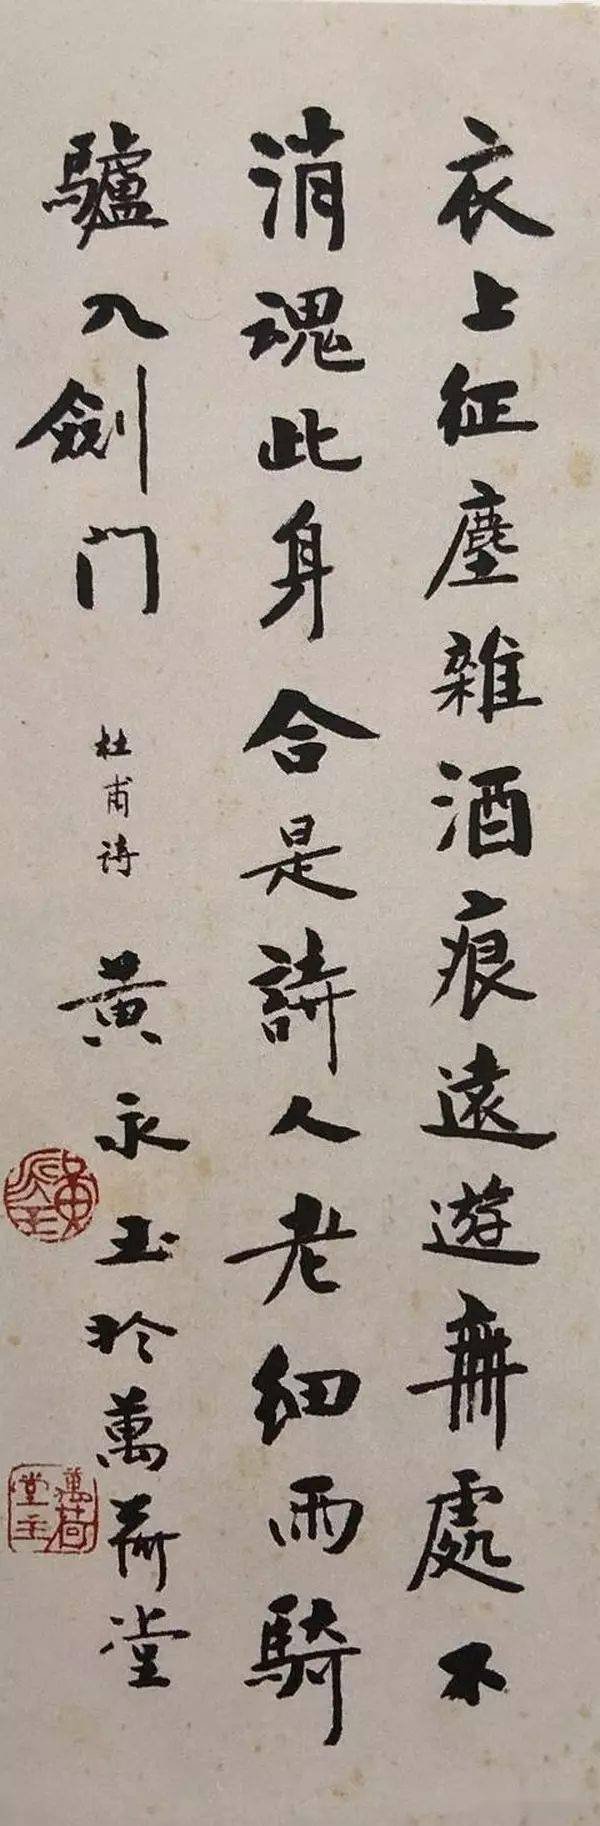 衣上征塵雜酒痕遠遊無處不
消魂此身合是詩人老細雨騎
驢入劍门
杜甫诗
黄永玉於萬荷堂
黄永玉
萬荷堂主